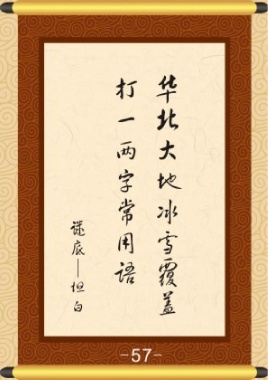 华北大地冰雪覆盖
打一两字常用语
谜底——坦白
-57-